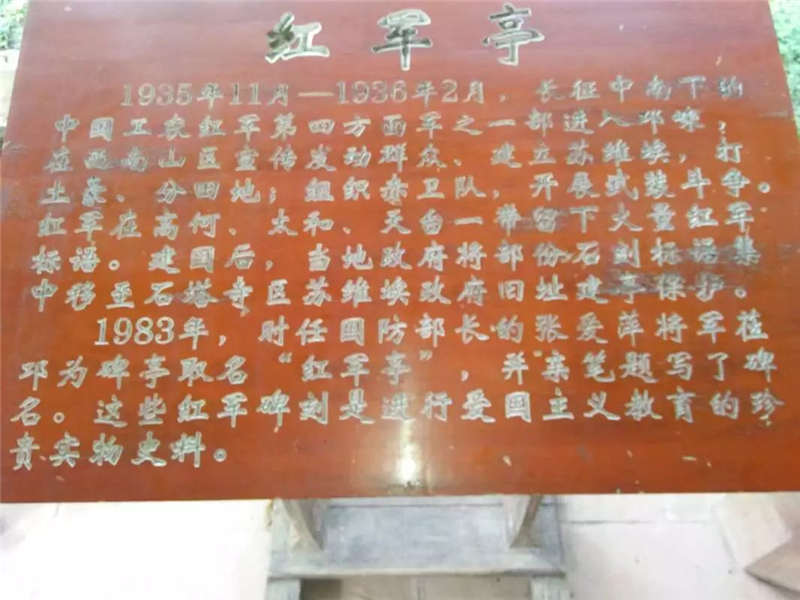 红军亭
1935年11月—1936年2月，长征中南下的
中国工农红军第四方面军之一部进入邛崃，
在西南山区宣传发动群众、建立苏维埃，打
土豪、分田地；组织赤卫队，开展武装斗争。
红军在高何、太和、天台一带留下大量红军
标语。建国后，当地政府将部份石刻标语集
中移至石塔寺区苏维埃政府旧址建亭保护。
1983年，时任国防部长的张爱萍将军莅
邛为碑亭取名“红军亭”，并亲笔题写了碑
名。这些红军碑刻是进行爱国主义教育的珍
贵实物史料。